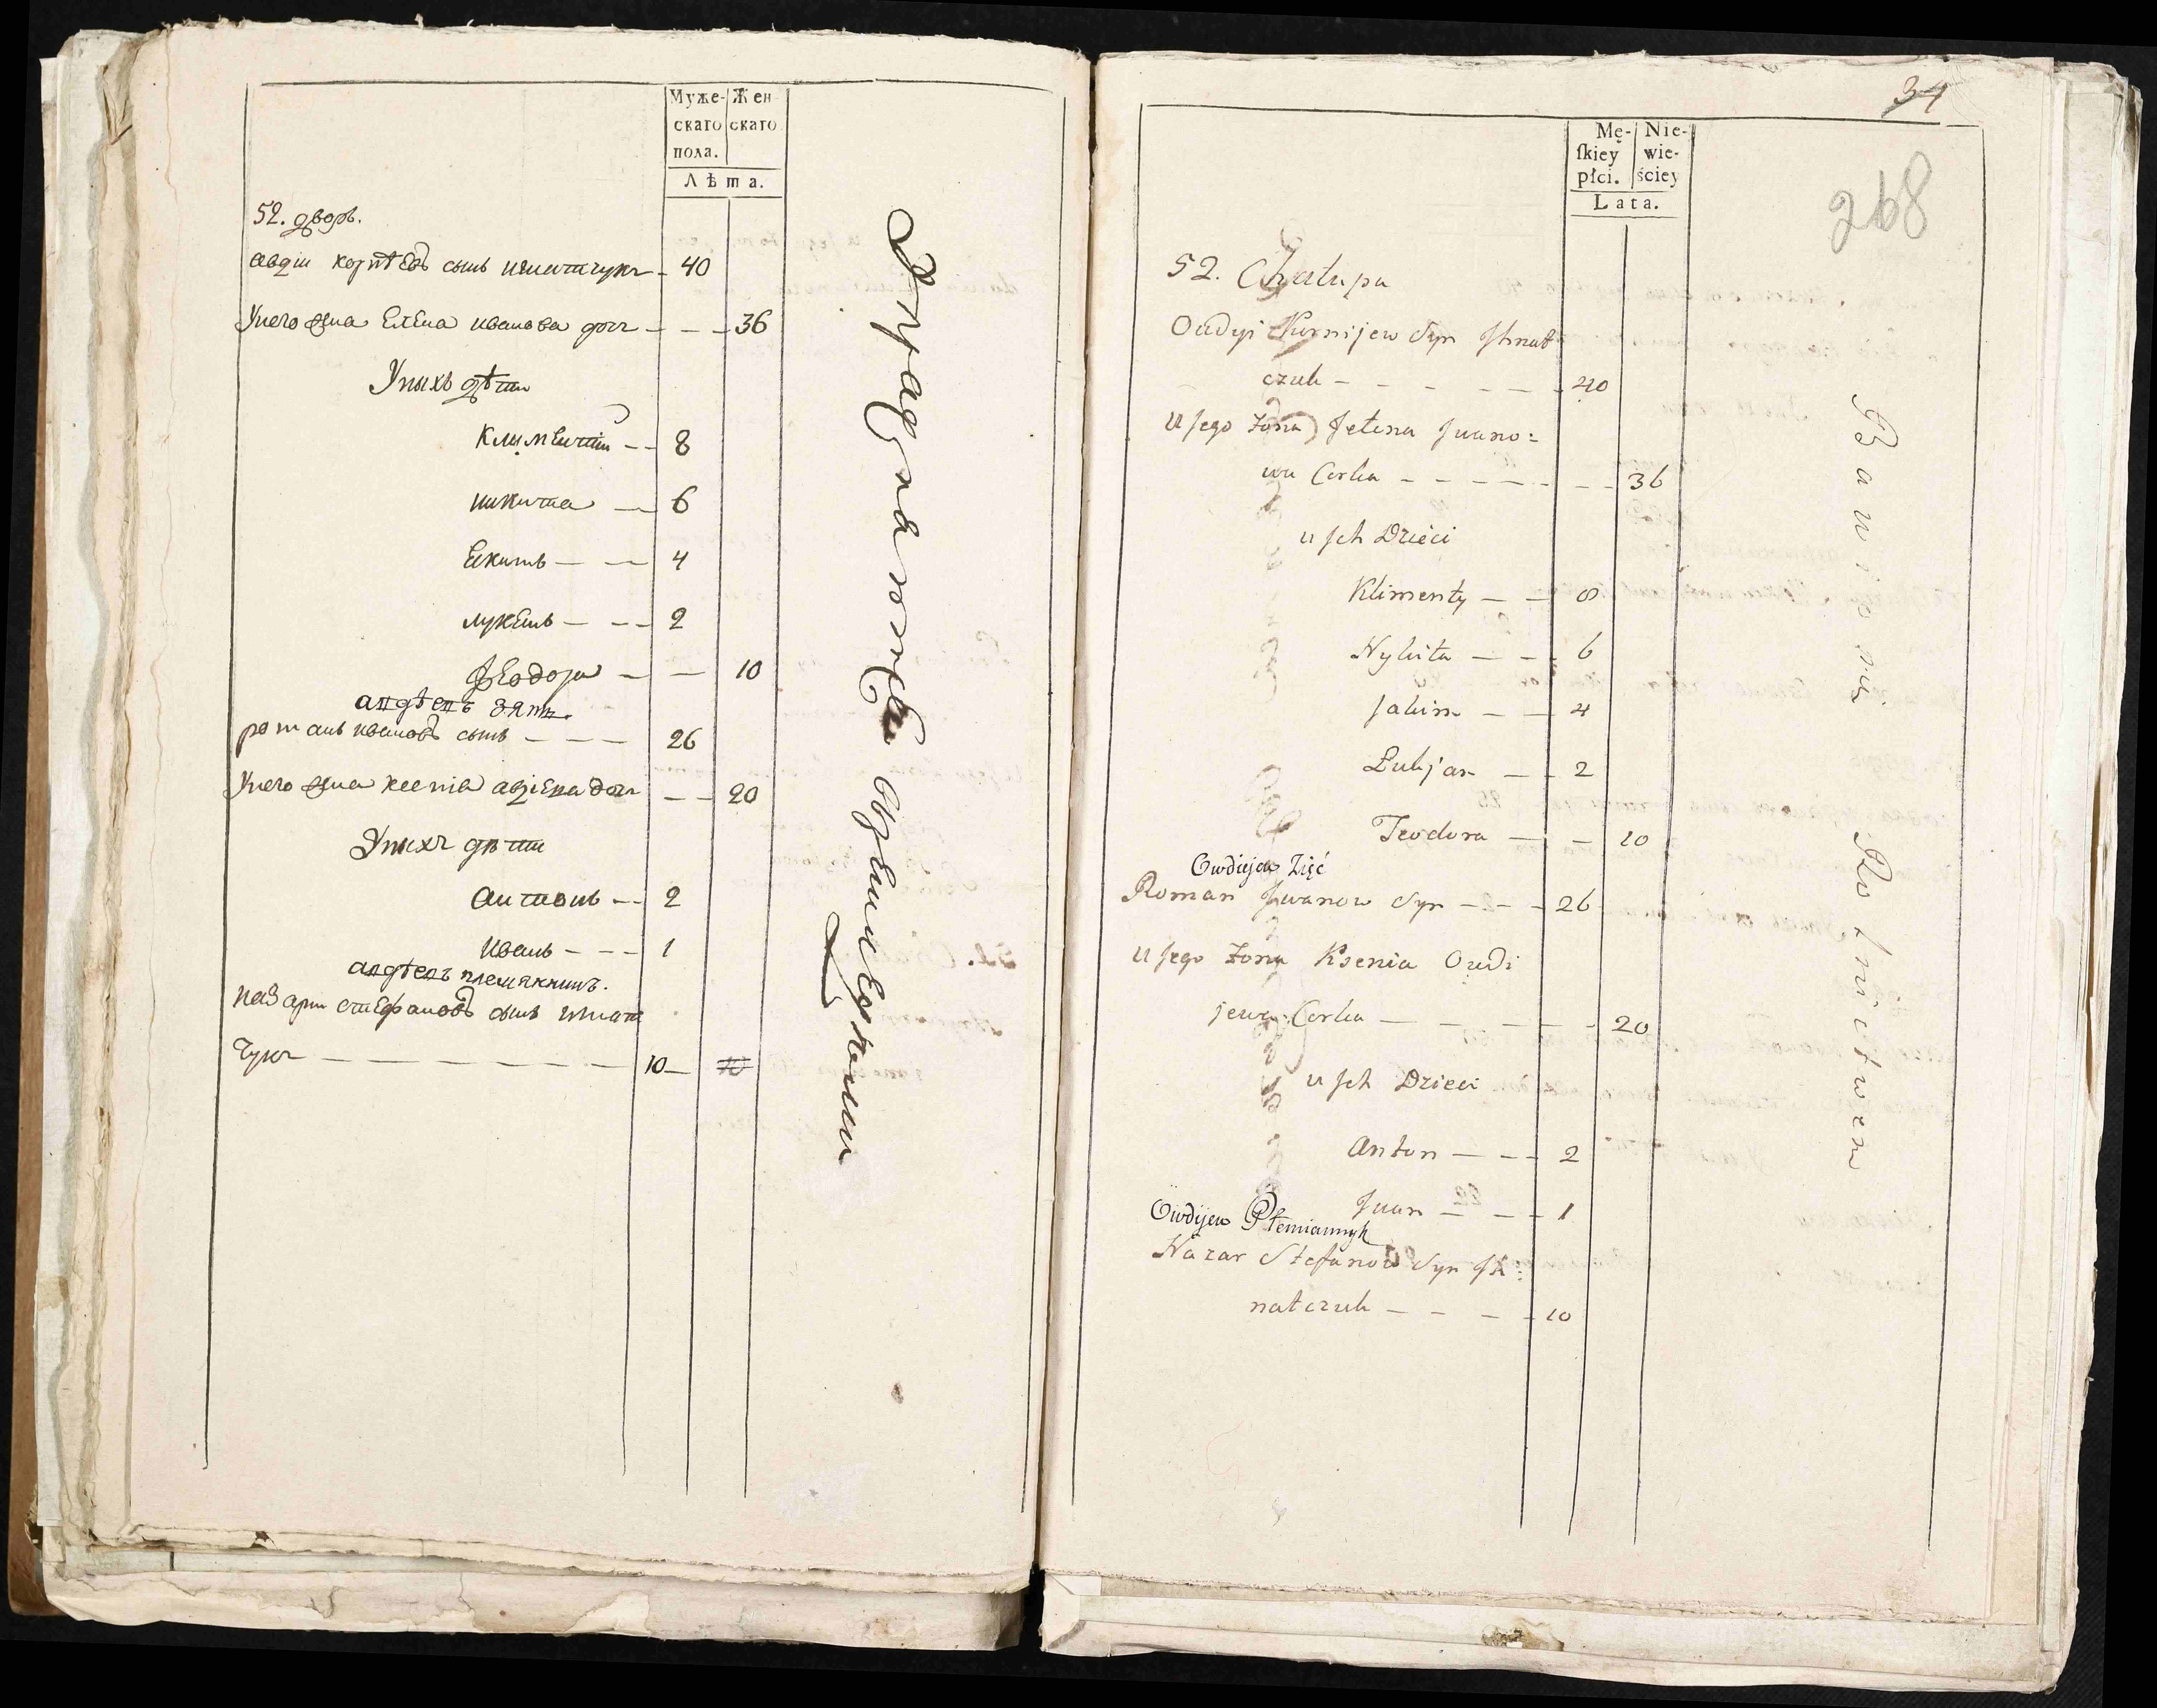 Муже-
скаго
пола.
Жен
скаго
Лѣта.
52. дворъ.
Авдіи корнѣевъ сынъ игнатчукъ - 40
Унего жна Елена иванова дочъ - - - 36
Унихъ дѣти
Климентіи - - 8
никита - 6
Екимъ - - 4
лукенъ - - - 2
Феодора - - 10
авдѣевъ зять.
романъ ивановъ сынъ - - - 26
Унего жна ксеніа авдіева дочъ - - 20
Унихъ дѣти
Антонъ - - 2
иванъ - - - 1
авдѣевъ племянникъ.
назари стефановъ сынъ игнат
чукъ - - - - - - - - 10 - 10
упражняются
34
268
Mę-
ſkiey
płci.
Nie-
wie-
ściey
Lata.
52. Chałupa
Oudyi Kornijew Syn Ihnat
czuk - - - - - - - 40
u Jego Żona Jełena Iwano=
wa Corka - - - - - - - 36
u Jch Dzieci
Klimenty - - 8
Nykita - - - 6
Jakim - - 4
Łukjan - - 2
Teodora - - 10
Owdiejew Zięć
Roman Iwanow Syn - - - 26
u Jego Żona Ksenia Oudi
jewa Corka - - - - - 20
u Jch Dzieci
Anton - - - 2
Iwan - - - 1
Owdijew Plemiannyk
Nazar Stefanow Syn Ih=
natczuk - - - - 10
Bawio się Rolnictwem